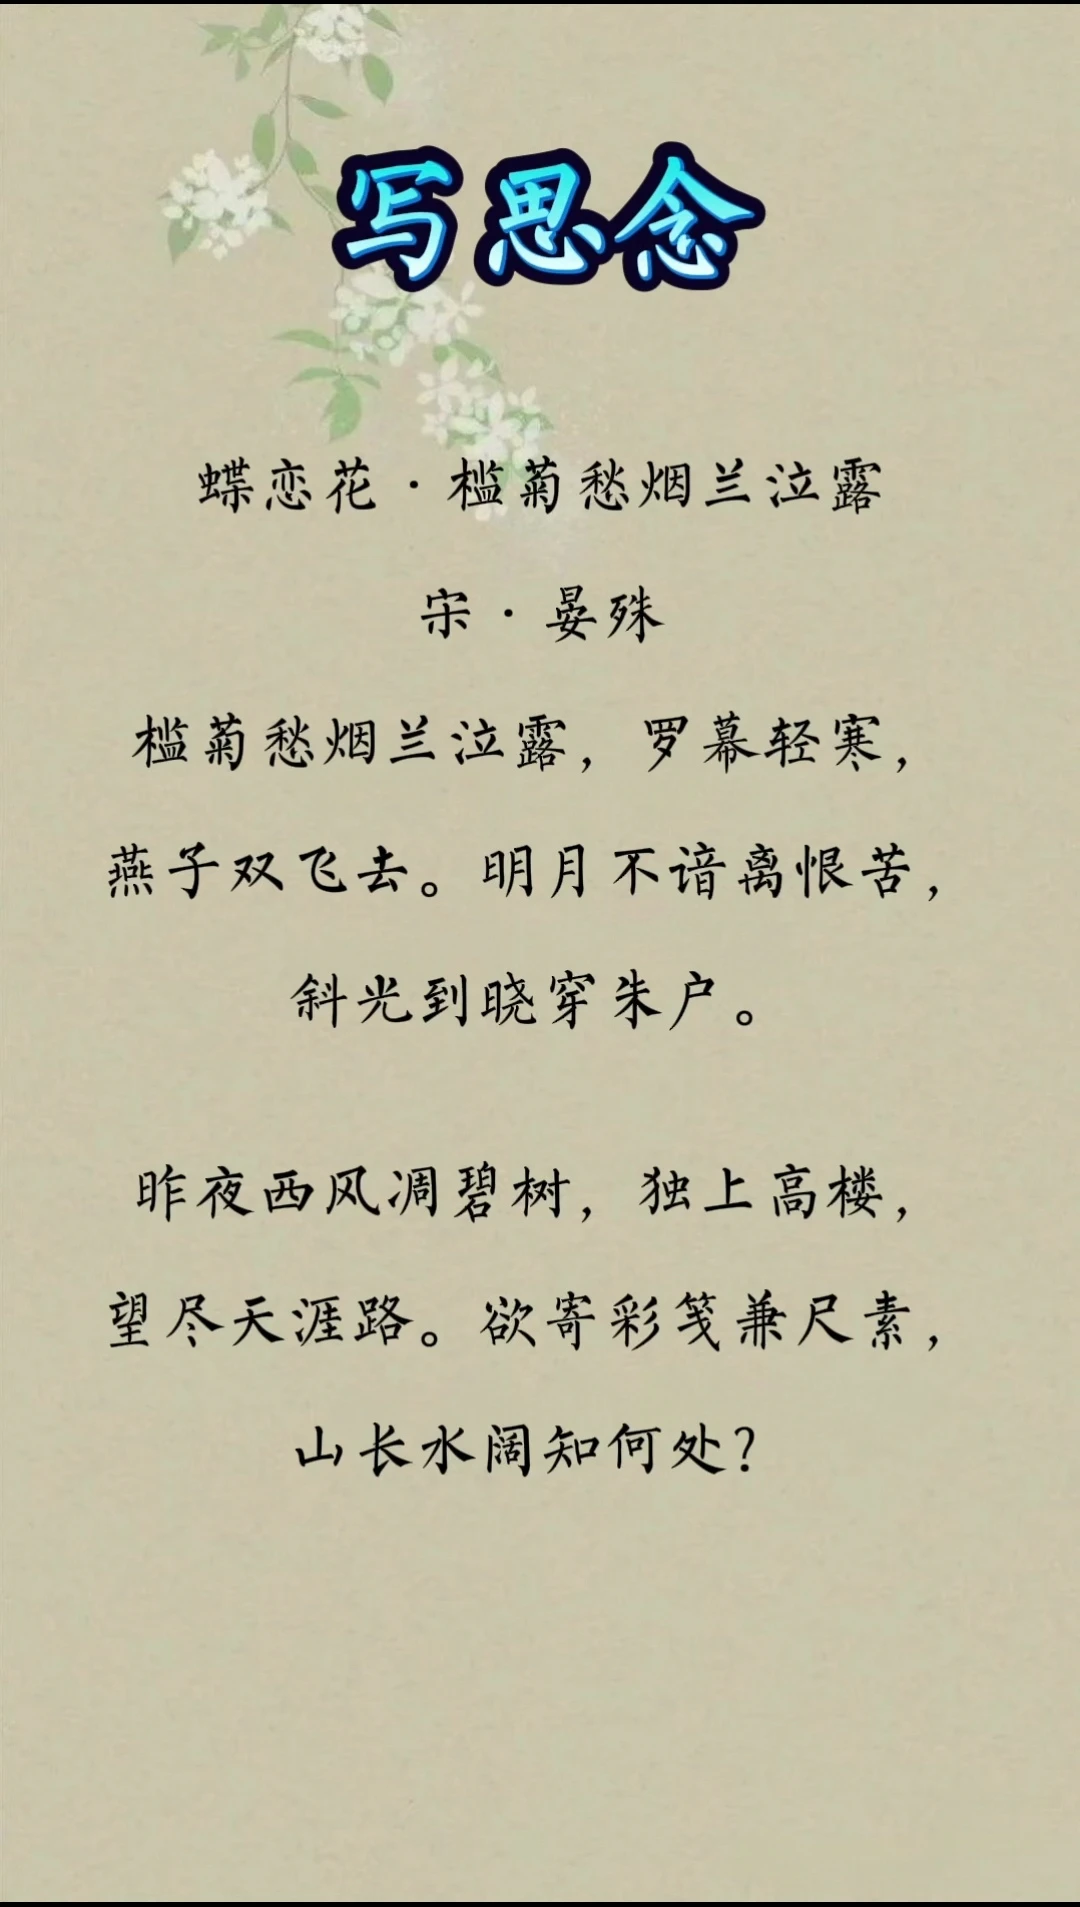 写思念
蝶恋花·槛菊愁烟兰泣露
宋·晏殊
槛菊愁烟兰泣露，罗幕轻寒，
燕子双飞去。明月不谙离恨苦，
斜光到晓穿朱户。
昨夜西风凋碧树，独上高楼，
望尽天涯路。欲寄彩笺兼尺素，
山长水阔知何处？